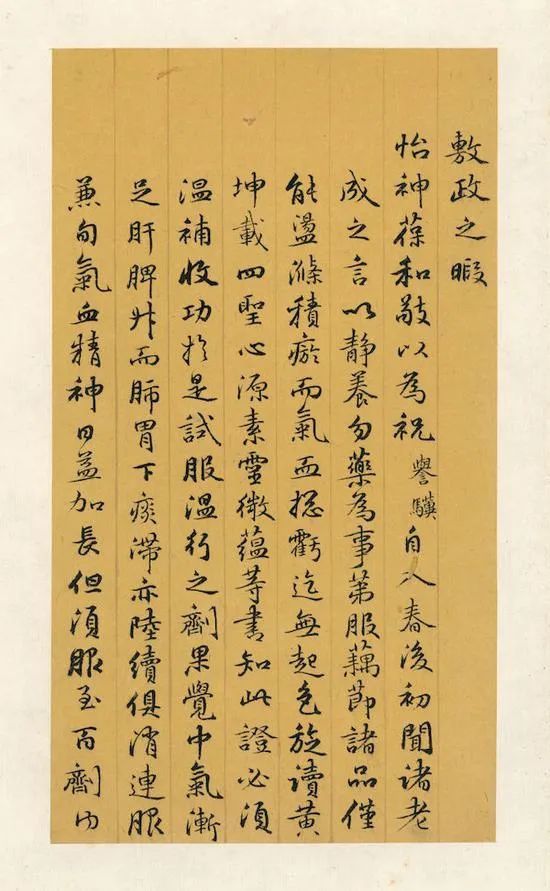 敷政之暇
怡神葆和敬以為祝譽驥自入春後初聞諸老
成之言以靜養勿藥為事第服藕節諸品僅
能盪滌積瘀而氣血揔虧迄無起色旋讀黃
坤載四聖心源素靈微蘊等書知此證必須
溫補收功於是試服溫行之劑果覺中氣漸
足肝脾升而肺胃下痰滯亦陸續俱消連服
兼旬氣血精神日益加長但須服至百劑內